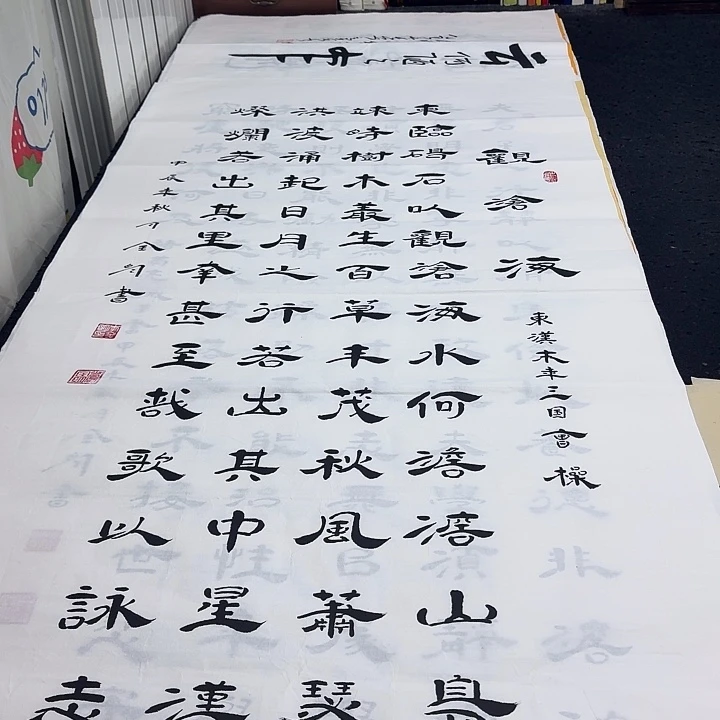 觀滄海
東漢末年三国曹操
東臨碣石以觀滄海水何澹澹山島
竦峙樹木叢生百草丰茂秋風蕭瑟
洪波涌起日月之行若出其中星漢
燦爛若出其里幸甚至哉歌以詠志
甲辰末秋于金書